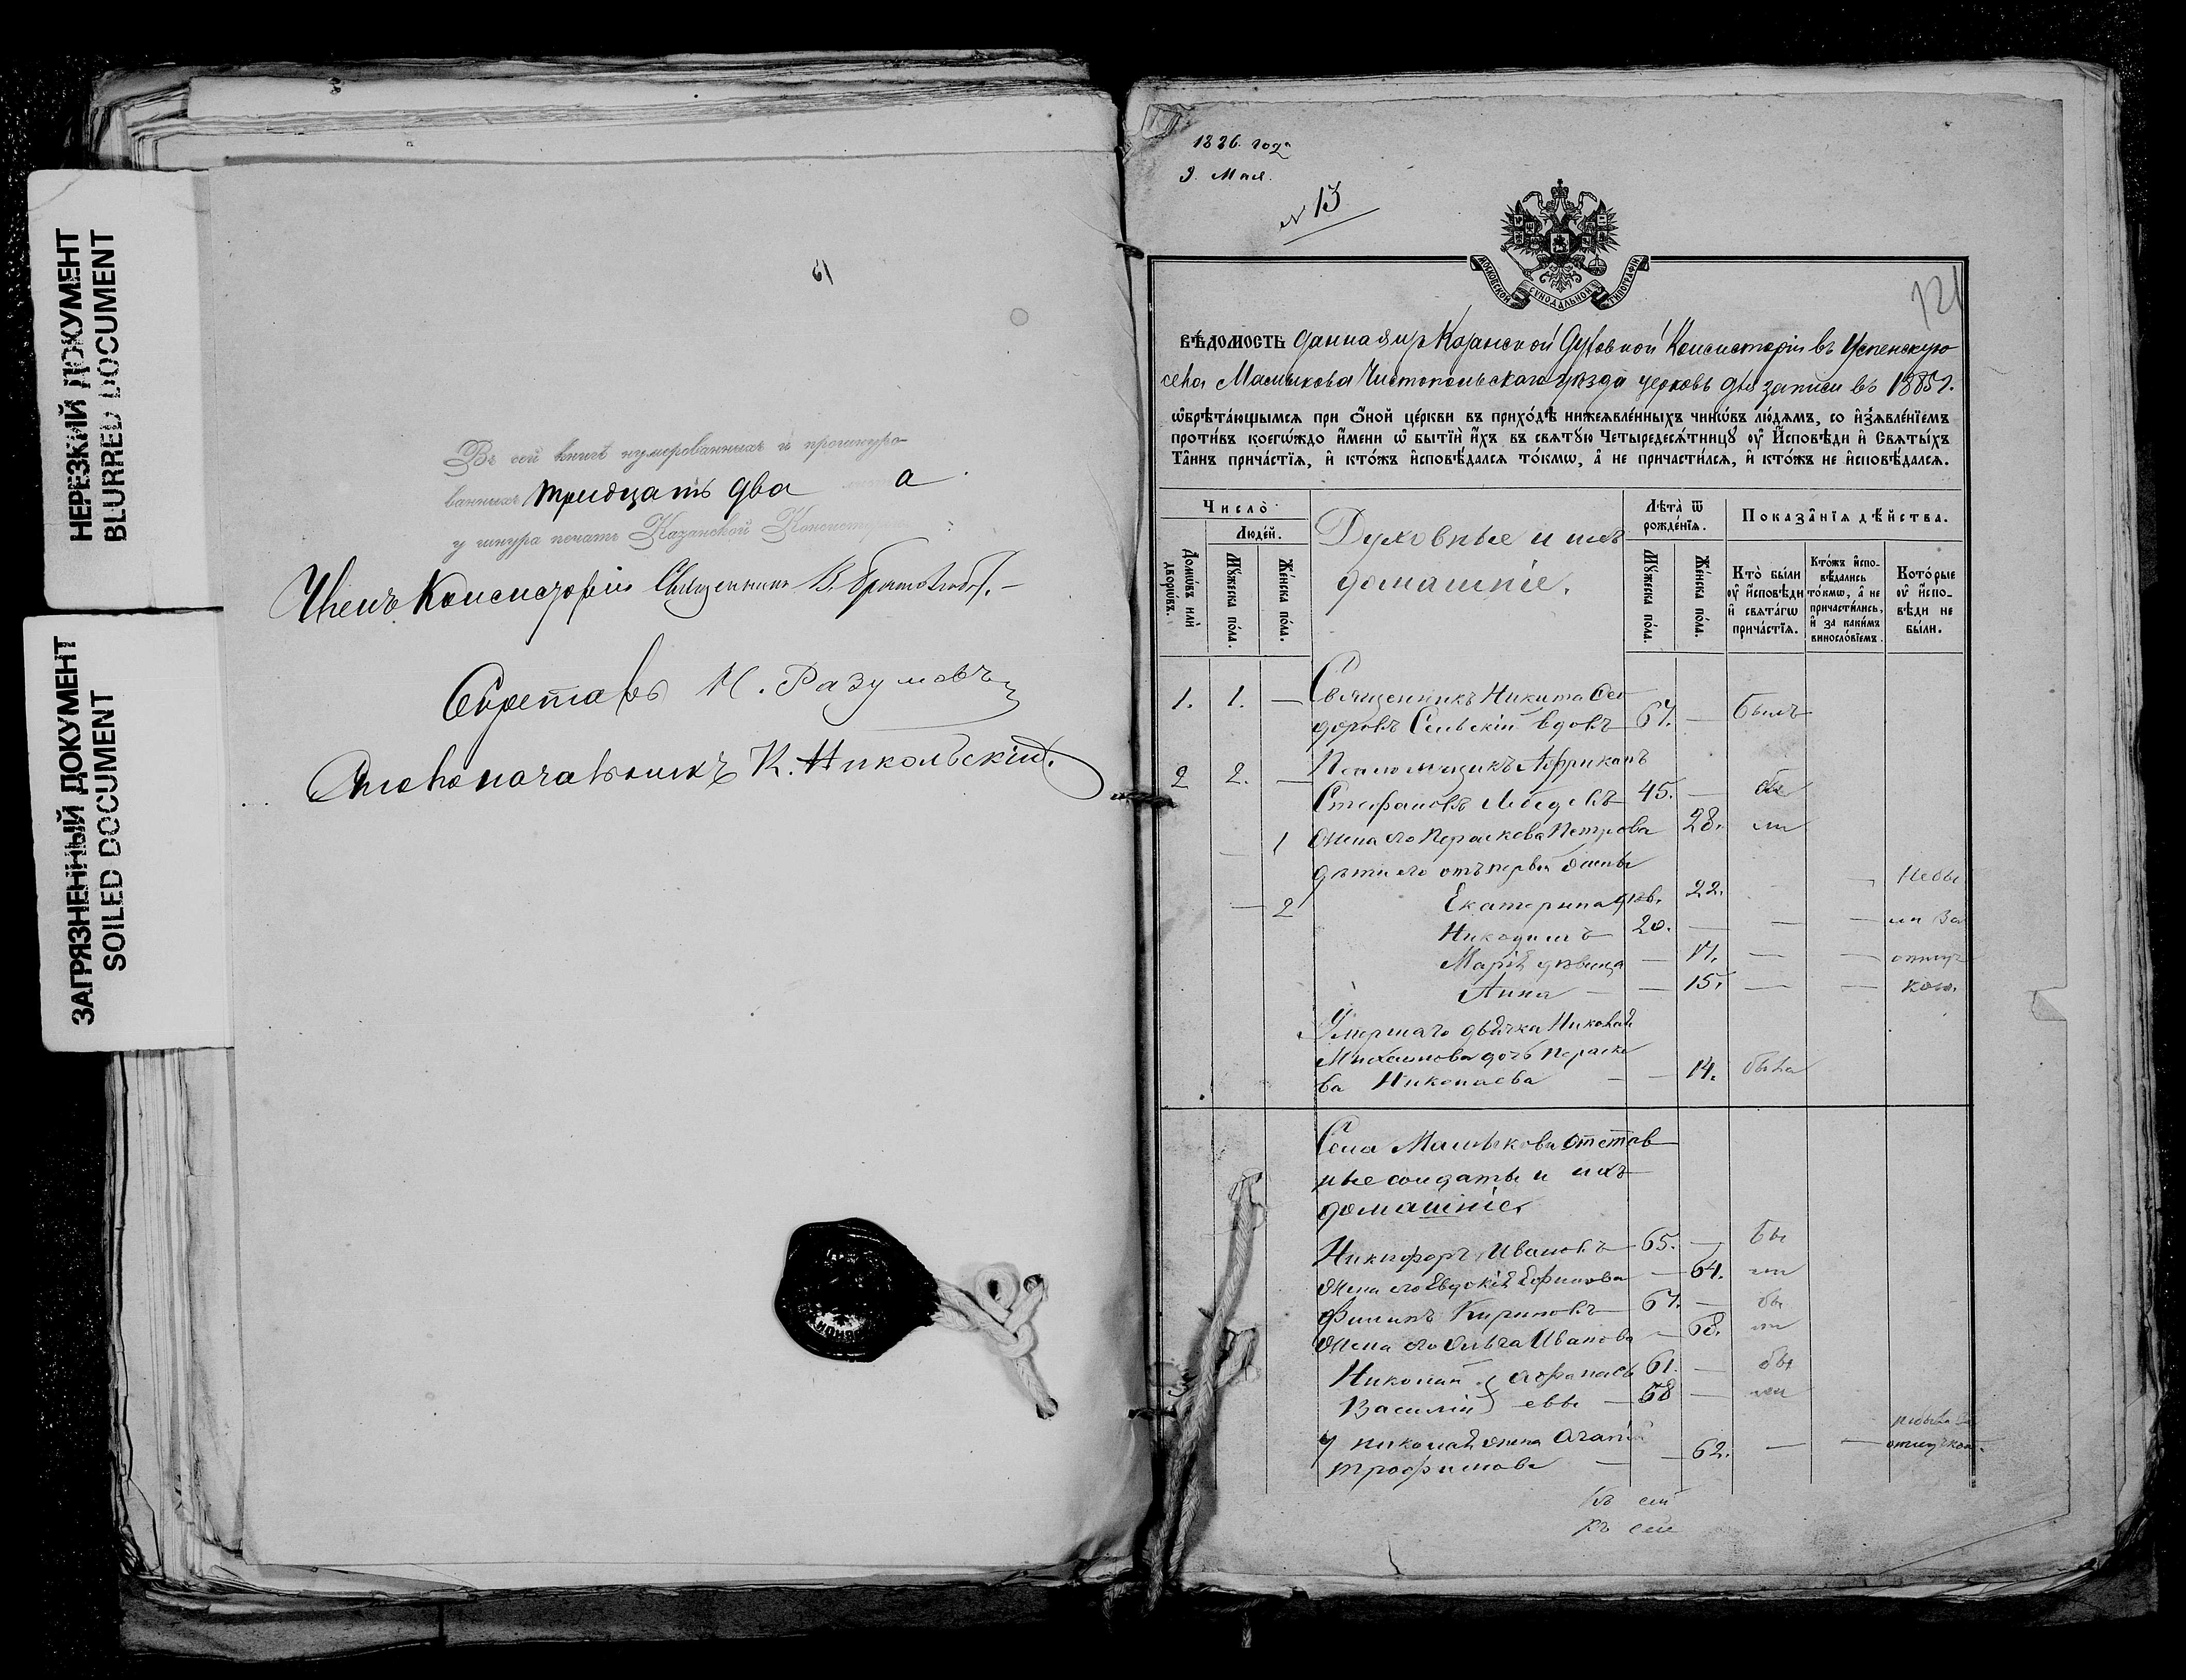 НЕРЕЗКИЙ ДОКУМЕНТ
BLURRED DOCUMENT
ЗАГРЯЗНЕННЫЙ ДОКУМЕНТ
SOILED DOCUMENT
Въ сей книгѣ нумерованныхъ и прошнуро-
ванныхъ тридцать два а
у шнура печать Казанской Консистор
Членъ Консисторіи Священникъ В. Братолюбовъ.
Секретарь Н. Разумовъ
Столоначальникъ К. Никольскій.
1886. года
9. Мая.
N 13
МОСКОВСКОЙ СУНОДАЛЬНОЙ ТИПОГРАФІИ
121
ВѢДОМОСТЬ данная изъ Казанской Духовной Консисторіи въ Успенскую
села Мамыкова Чистопольскаго уѣзда церковь для записи въ 1885 г.
ѡбрѣта́ющымся при ѻ҆́ной це́ркви въ прихо́дѣ нижеѧвле́нныхъ чинѡ́въ лю́дямъ, со и҆з̾ѧвле́нїемъ
проти́въ коегѡ́ждо и҆́мени ѡ҆ бытїѝ и҆́хъ въ святꙋ́ю Четыредеся́тницꙋ ᲂу҆ И҆сповѣ́ди и҆ Святы́хъ
Та̑йнъ прича́стїя, и҆ кто́жъ и҆сповѣ́дался то́кмѡ, а҆ не причасти́лся, и҆ кто́жъ не и҆сповѣ́дался.
Число̀
Люде́й.
Домѡ́въ и҆лѝ дворѡ́въ.
Мꙋ́жеска по́ла.
Же́нска по́ла.
Духовные и ихъ
домашніе.
Лѣ́та ѿ рожде́нїя.
Мꙋ́жеска по́ла.
Же́нска по́ла.
Показа̑нїя дѣ́йства.
Кто̀ бы́ли ᲂу҆ и҆сповѣ́ди и҆ свята́гѡ прича́стїя.
Кто́жъ и҆спо-вѣ́дались то́кмѡ, а҆ не причасти́лись, и҆ за каки́мъ винословїемъ.
Кото́рые ᲂу҆ и҆спо-вѣ́ди не бы́ли.
1. 1. — Священникъ Никита Ѳео
доровъ Сельскій вдовъ 67. — былъ
2 2. — Псаломщикъ Африканъ
Стефановъ Лебедевъ 45. — бы
1 Жена его Параскева Петрова 28. ли
дѣти его отъ первой жены
2 Екатерина дѣв. 22. — небы
Никодимъ 20. — — — ли за
Марія дѣвица — 17. — — отлуч
Анна — — 15. — — кою.
Умершаго дьячка Николая
Михайлова дочь Параске
ва Николаева — — 14. была
Села Мамыкова отстав
ные солдаты и ихъ
домашніе.
Никифоръ Ивановъ 65. — бы
Жена его Евдокія Ефимова — 64. ли
Филипъ Кириловъ 67. — бы
Жена его Ольга Иванова — 68. ли
Николай } Афанась 61. — бы
Василій } евы — 58 — ли
У Николая жена Агапія
Трофимова — — 62. — — отлучкою.